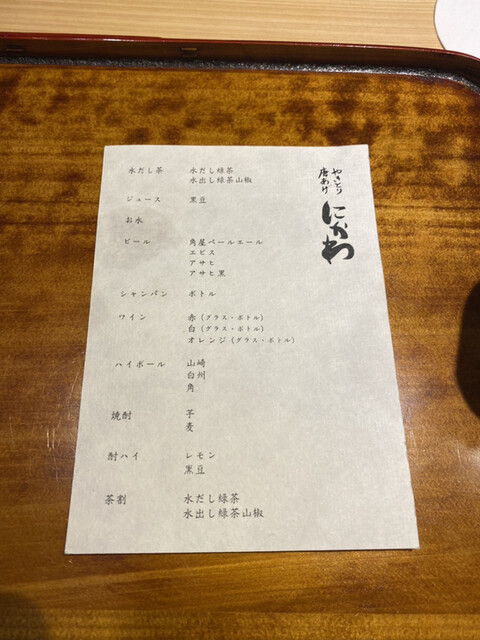 やきとり
唐あげ
にかわ
水だし茶 水だし緑茶
水出し緑茶山椒
ジュース 黒豆
お水
ビール 角屋ペールエール
エビス
アサヒ
アサヒ黒
シャンパン ボトル
ワイン 赤（グラス・ボトル）
白（グラス・ボトル）
オレンジ（グラス・ボトル）
ハイボール 山崎
白州
角
焼酎 芋
麦
酎ハイ レモン
黒豆
茶割 水だし緑茶
水出し緑茶山椒